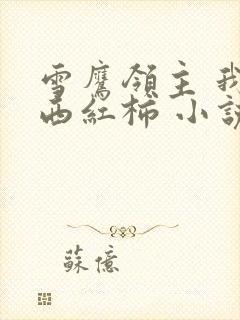 雪鷹領主 我
西紅柿 小說
蘇億